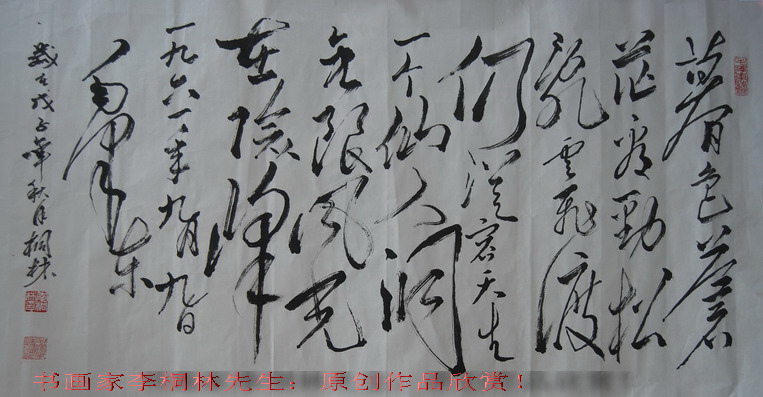 暮色蒼
茫看勁松
亂雲飛渡
仍從容天生
一个仙人洞
无限风光
在險峰
一九六一年九月九日
毛泽东
歲在戊子年秋月桐林
书画家李桐林先生：原创作品欣赏！